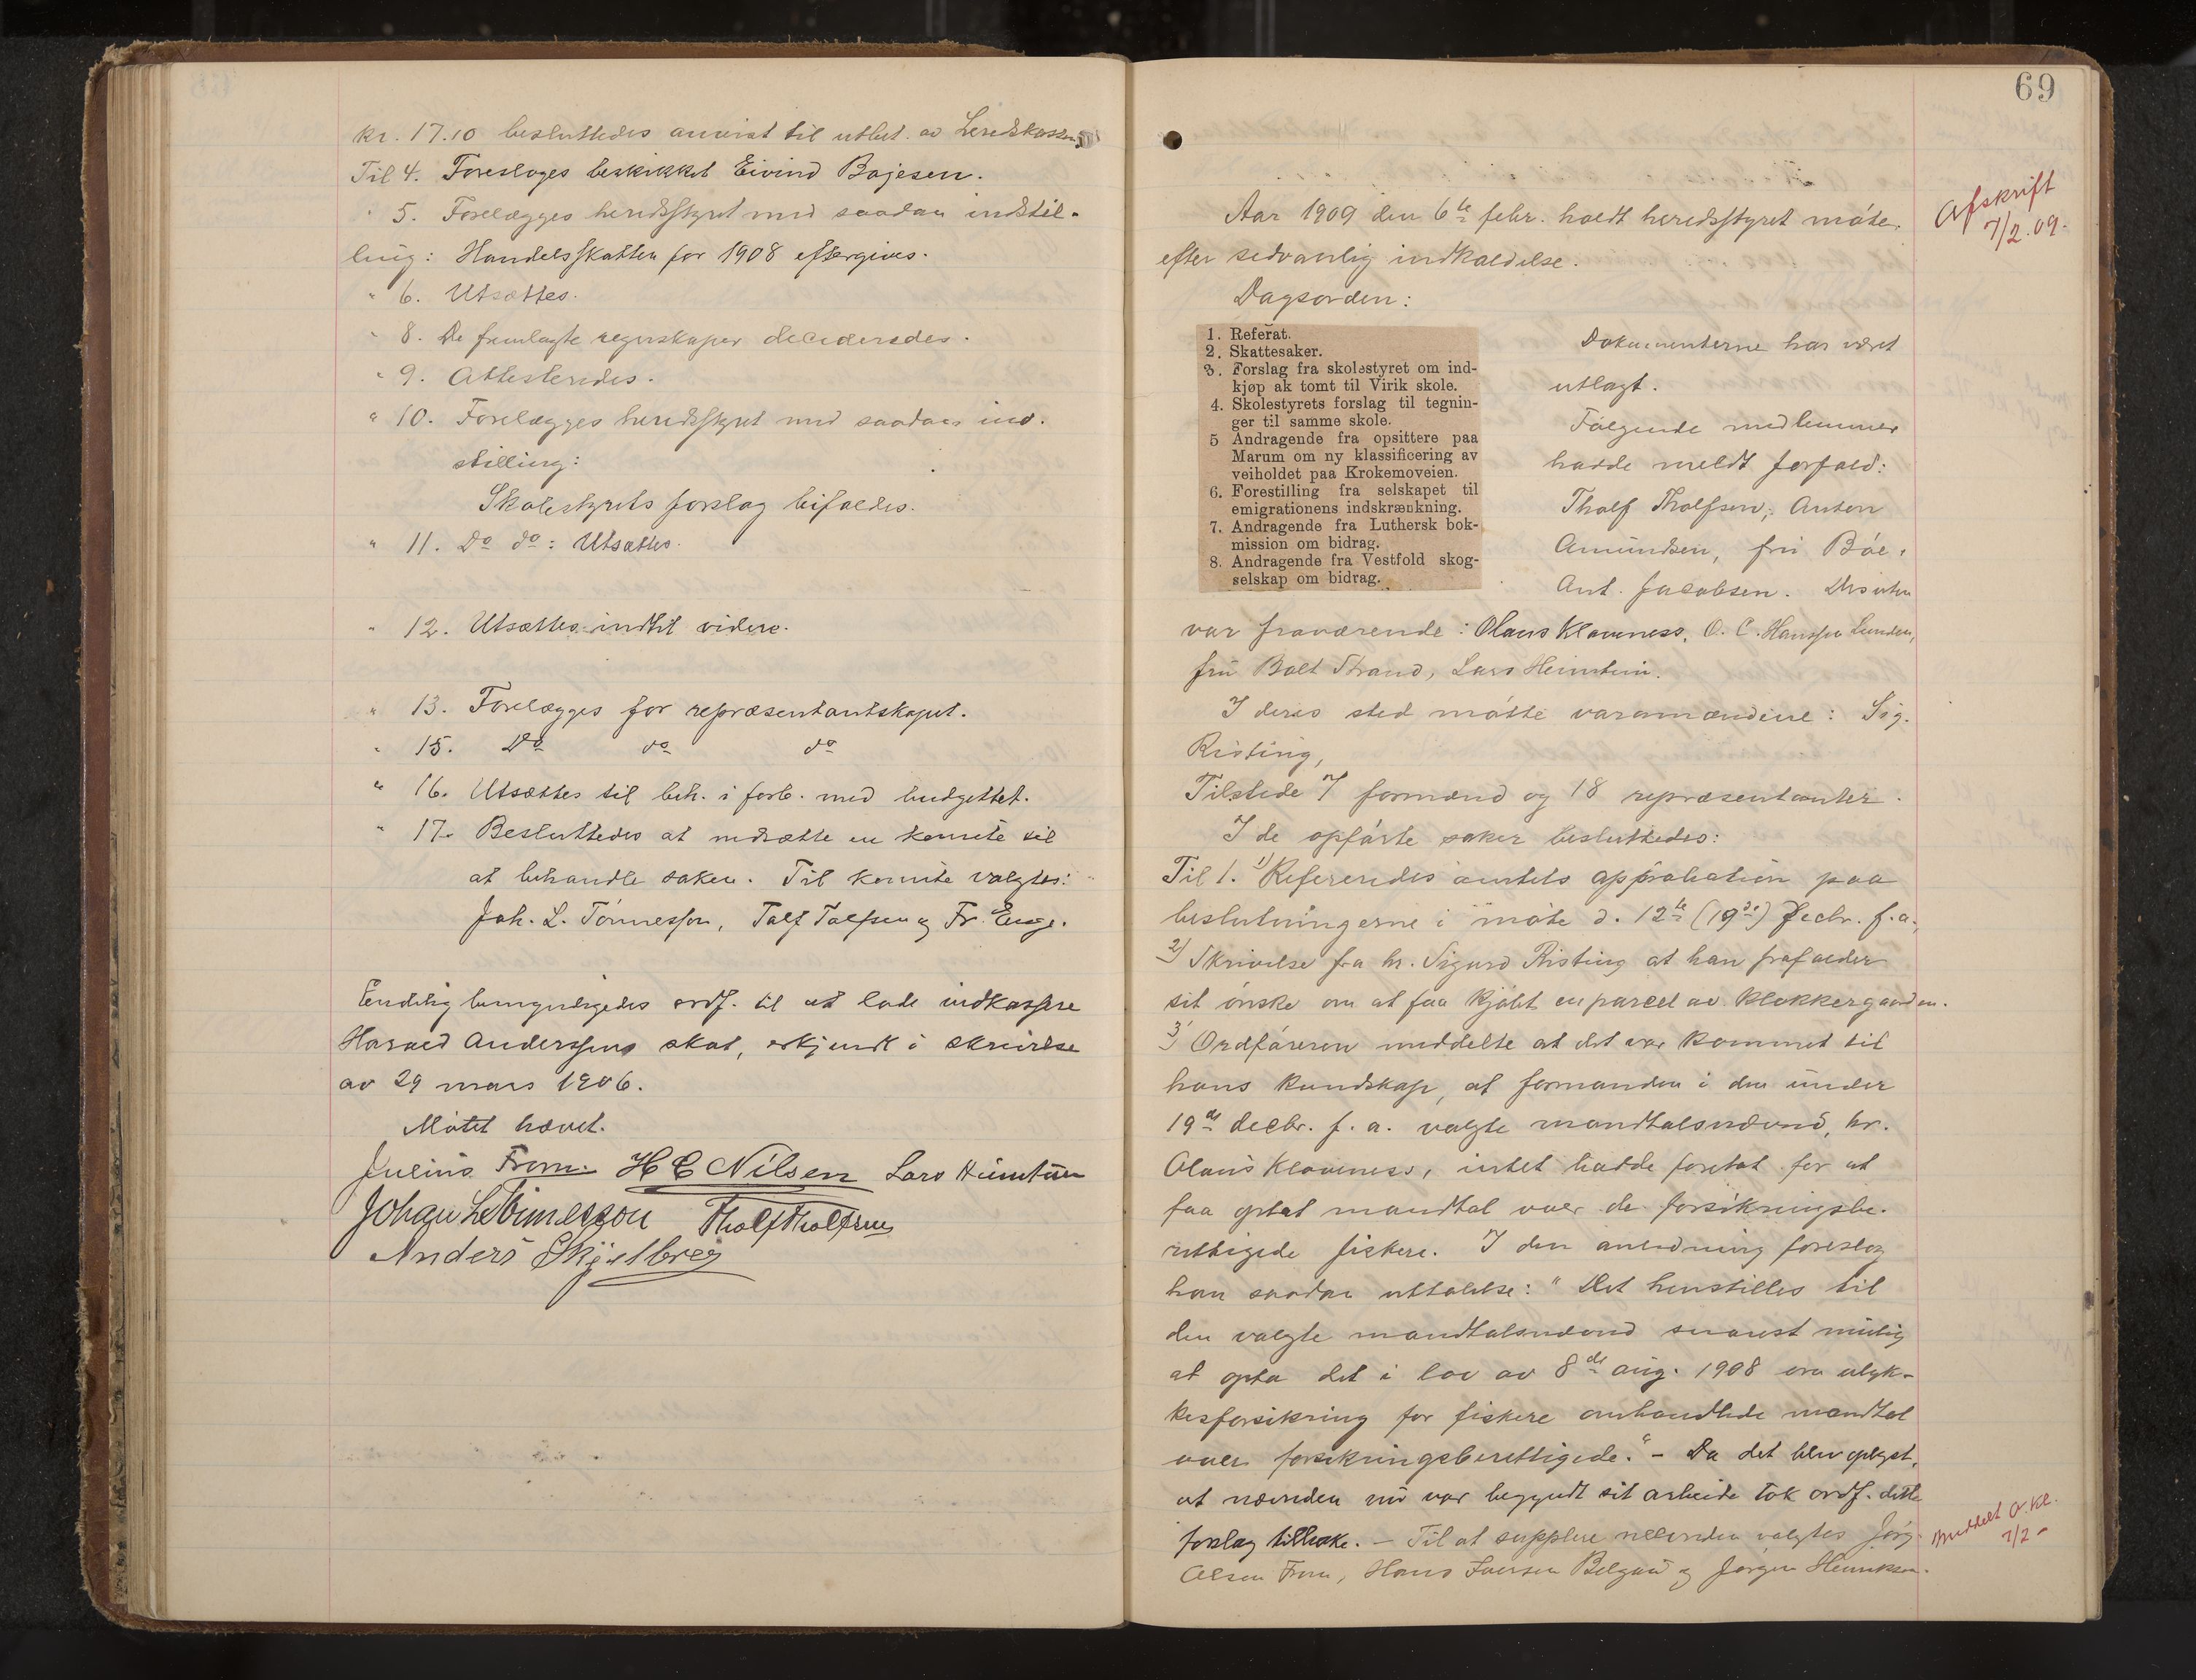 kr. 17.10 besluttedes anvist til utbet. av Heredskassen
Til 4. Foreslages beskikket Eivind Bojesen.
" 5. Forelægges heredsstyret med saadan indstil-
ling: Handelsskatten for 1908 eftergives.
" 6. Utsættes.
" 8. De fremlagte regnskaper decideredes.
" 9. Attesteredes.
" 10. Forelægges heredsstyret med saadan ind-
stilling:
Skolestyrets forslag bifaldes.
" 11. Do do: Utsættes.
" 12. Utsættes indtil videre.
" 13. Forelægges for repræsentantskapet.
" 15. Do do do
" 16. Utsættes til beh. i forb. med budgettet.
" 17. Besluttedes at nedsætte en komite til
at behandle saken. Til komite valgtes:
Joh. L. Tønnessen, Talf Talfsen og Fr. Enge.
Endelig bemyndigedes ordf. til at lade indkassere
Harald Anderssens skat, erkjendt i skrivelse
av 29 mars 1906.
Møtet hævet.
Julius From. H C Nilsen Lars Heimtun
Johan L Tønnesson Tholf Tholfsen
Anders Skjelbreg
69
Afskrift
7/2.09.
Aar 1909 den 6te febr. holdt heredsstyret møte
efter sedvanlig indkaldelse.
Dagsorden:
1. Referat.
2. Skattesaker.
3. Forslag fra skolestyret om ind-
kjøp ak tomt til Virik skole.
4. Skolestyrets forslag til tegnin-
ger til samme skole.
5 Andragende fra opsittere paa
Marum om ny klassificering av
veiholdet paa Krokemoveien.
6. Forestilling fra selskapet til
emigrationens indskrænkning.
7. Andragende fra Luthersk bok-
mission om bidrag.
8. Andragende fra Vestfold skog-
selskap om bidrag.
Dokumenterne har været
utlagt.
Følgende medlemmer
hadde meldt forfald:
Tholf Tholfsen, Anton
Amundsen, fru Bøe,
Ant. Jacobsen. Desuten
var fraværende: Olaus Klaveness, O. C. Hanssen Lunden,
fru Bolt Strand, Lars Heimtun.
I deres sted møtte varamændene: Sig.
Risting,
Tilstede 7 formænd og 18 repræsentanter.
I de opførte saker besluttedes:
Til 1. 1) Refereredes amtets approbation paa
beslutningerne i møte d. 12te (19de) decbr. f.a.,
2) Skrivelse fra hr. Sigurd Risting at han frafalder
sit ønske om at faa kjøbt en parcel av Klokkergaarden.
3) Ordføreren meddelte at det var kommet til
hans kundskap, at formanden i den under
19de decbr. f. a. valgte mandtalsnævnd, hr.
Olaus Klaveness, intet hadde foretat for at
faa optat mandtal over de forsikringsbe-
rettigede fiskere. I den anledning foreslog
han saadan uttalelse: "Det henstilles til
den valgte mandtalsnævnd snarest mulig
at opta det i lov av 8de aug. 1908 om ulyk-
kesforsikring for fiskere omhandlede mandtal
over forsikringsberettigede." - Da det blev oplyst,
at nævnden nu var begyndt sit arbeide tok ordf. dette
forslag tilbake. - Til at supplere nævnden valgtes Jørg.
Olsen From, Hans Iversen Belgau og Jørgen Henriksen.
Meddelt O. Kl.
7/2 -